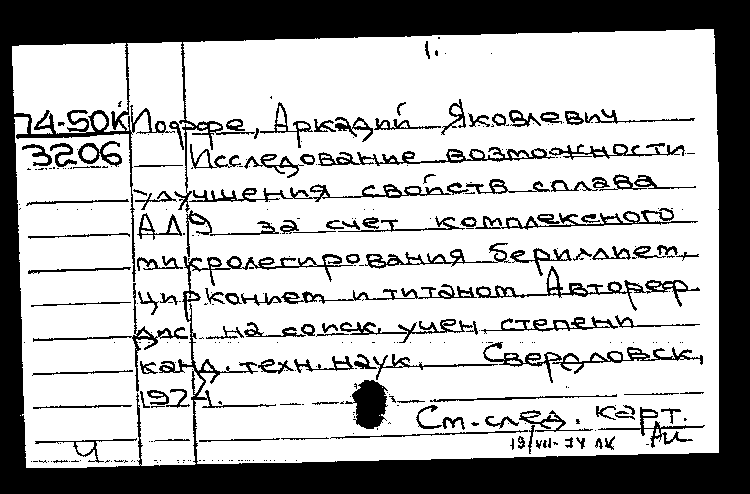 1.
74-50К Иоффе, Аркадий Яковлевич
3206 Исследование возможности
улучшения свойств сплава
АЛ9 за счет комплексного
микролегирования бериллием,
цирконием и титаном. Автореф.
дис. на соиск. учен. степени
канд. техн. наук. Свердловск,
1974.
См. след. карт.
Ч 19/VII-74 ЛК